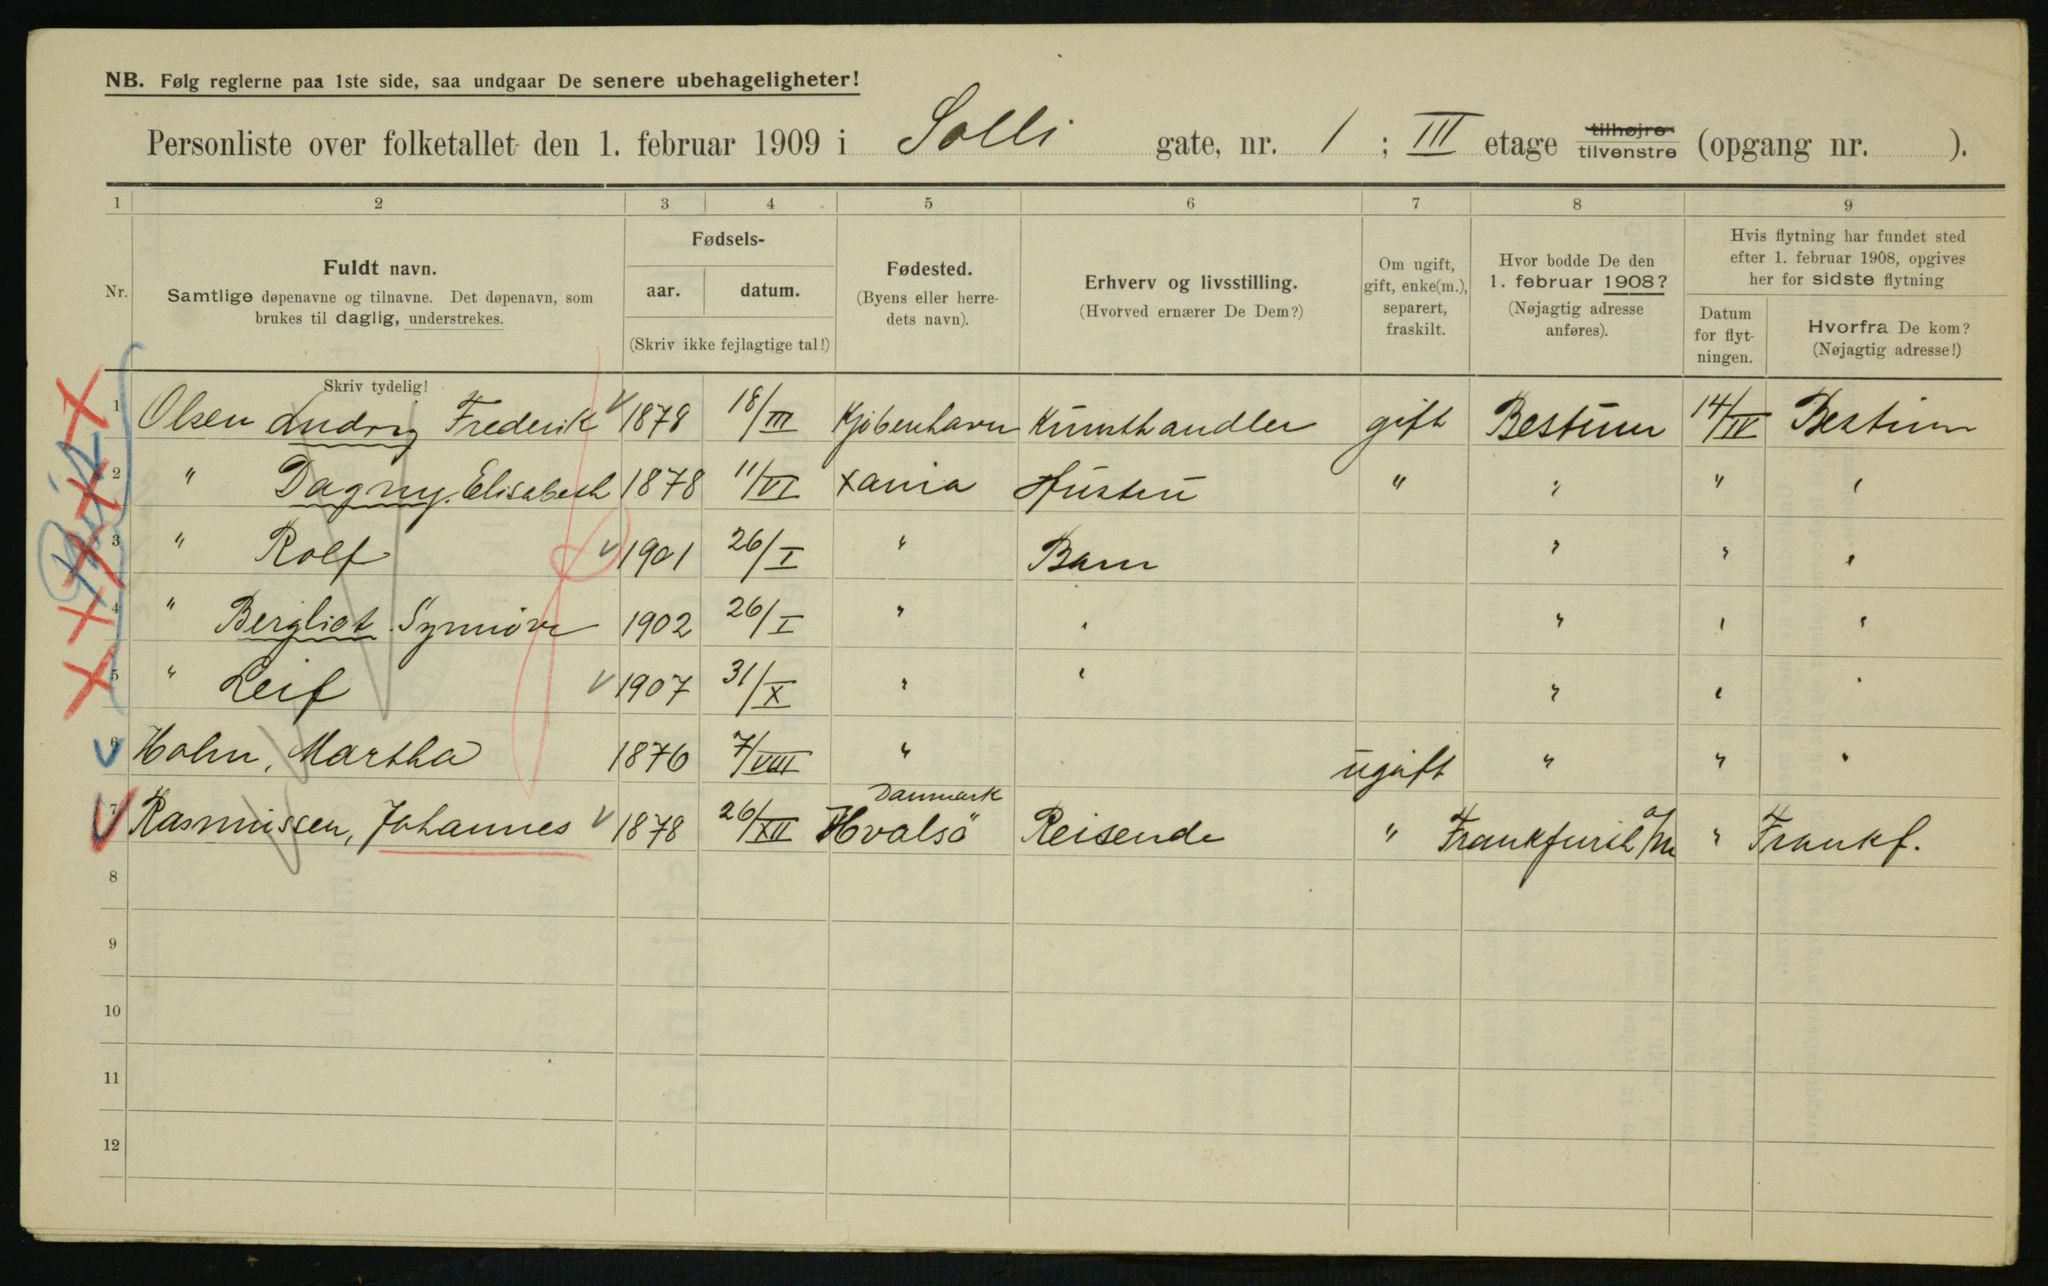 NB. Følg reglerne paa 1ste side, saa undgaar De senere ubehageligheter!
Personliste over folketallet den 1. februar 1909 i Solli gate, nr. 1 ; III etage tilhøjre tilvenstre (opgang nr. ).
1 2 3 4 5 6 7 8 9
Nr.
Fuldt navn.
Samtlige døpenavne og tilnavne. Det døpenavn, som
brukes til daglig, understrekes.
Skriv tydelig!
Fødsels-
aar. datum.
(Skriv ikke fejlagtige tal!)
Fødested.
(Byens eller herre-
dets navn).
Erhverv og livsstilling.
(Hvorved ernærer De Dem?)
Om ugift,
gift, enke(m.),
separert,
fraskilt.
Hvor bodde De den
1. februar 1908?
(Nøjagtig adresse
anføres).
Hvis flytning har fundet sted
efter 1. februar 1908, opgives
her for sidste flytning
Datum
for flyt-
ningen.
Hvorfra De kom?
(Nøjagtig adresse!)
1 Olsen Ludvig Frederik 1878 18/III Kjöbenhavn Kunsthandler gift Bestum 14/IV Bestum
2 " Dagny Elisabeth 1878 11/VI Xania Hustru " " " "
3 " Rolf 1901 26/I " Barn " " "
4 " Bergliot Synnöve 1902 26/I " " " " "
5 " Leif 1907 31/X " " " " "
6 Holm, Martha 1876 7/VIII " ugift " " "
7 Rasmussen, Johannes 1878 26/XII Danmark Hvalsö Reisende " Frankfurth a/M " Frankf.
8
9
10
11
12